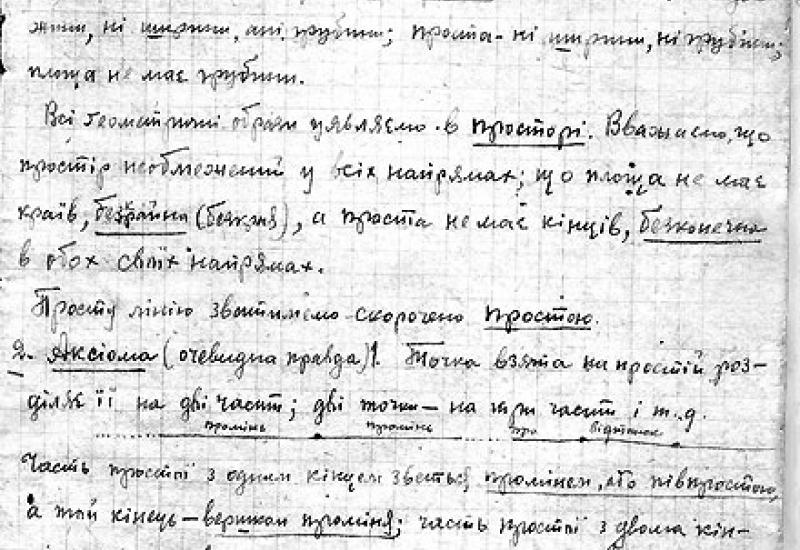 ні ширини, ані грубини; проста - ні ширини, ні грубини;
площа не має грубини.
Всі геометричні образи уявляємо в просторі. Вважаємо, що
простір необмежений у всіх напрямах; що площа не має
країв, безкрайна (безкрая), а проста не має кінців, безконечна
в обох своїх напрямах.
Просту лінію зватимемо скорочено простою.
2. Аксіома (очевидна правда) 1. Точка взята на простій роз-
діляє її на дві части; дві точки — на три части і т.д.
промінь промінь про відтинок
Часть простої з одним кінцем зветься променем, або півпростою,
а той кінець — вершком проміня; часть простої з двома кін-